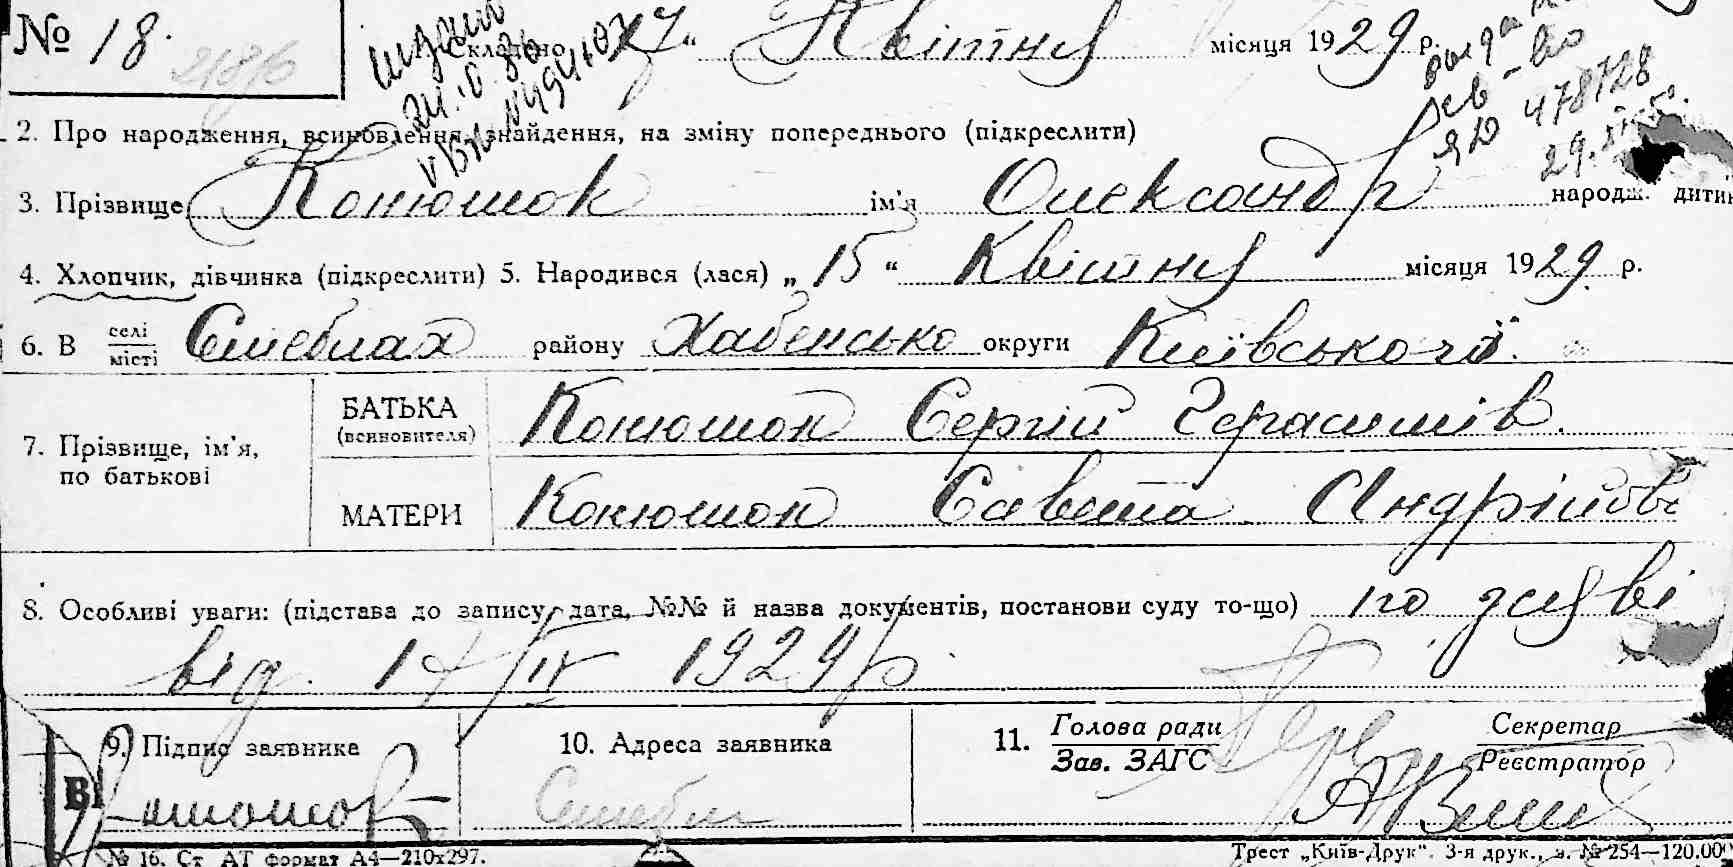 № 18. 2186
Складено „17“ Квітня місяця 1929 р.
2. Про народження, всиновлення, знайдення, на зміну попереднього (підкреслити)
478728
3. Прізвище Конюшок ім'я Олександр народж. дитин
4. Хлопчик, дівчинка (підкреслити) 5. Народився (лася) „15“ Квітня місяця 1929 р.
6. В селі місті Стеблах району Хабенсько округи Київської.
7. Прізвище, ім'я, по батькові
БАТЬКА (всиновителя) Конюшок Сергій Герасимів.
МАТЕРИ Конюшок Єлвета Андрійовн
8. Особливі уваги: (підстава до запису, дата, №№ й назва документів, постанови суду то-що) по заяві
від. 17/IV 1929 р.
9. Підпис заявника 10. Адреса заявника 11. Голова ради Зав. ЗАГС Секретар Реєстратор
Стебли
№ 16. Ст. АТ формат А4—210х297. Трест „Київ-Друк“. 3-я друк., з. № 254—120.00